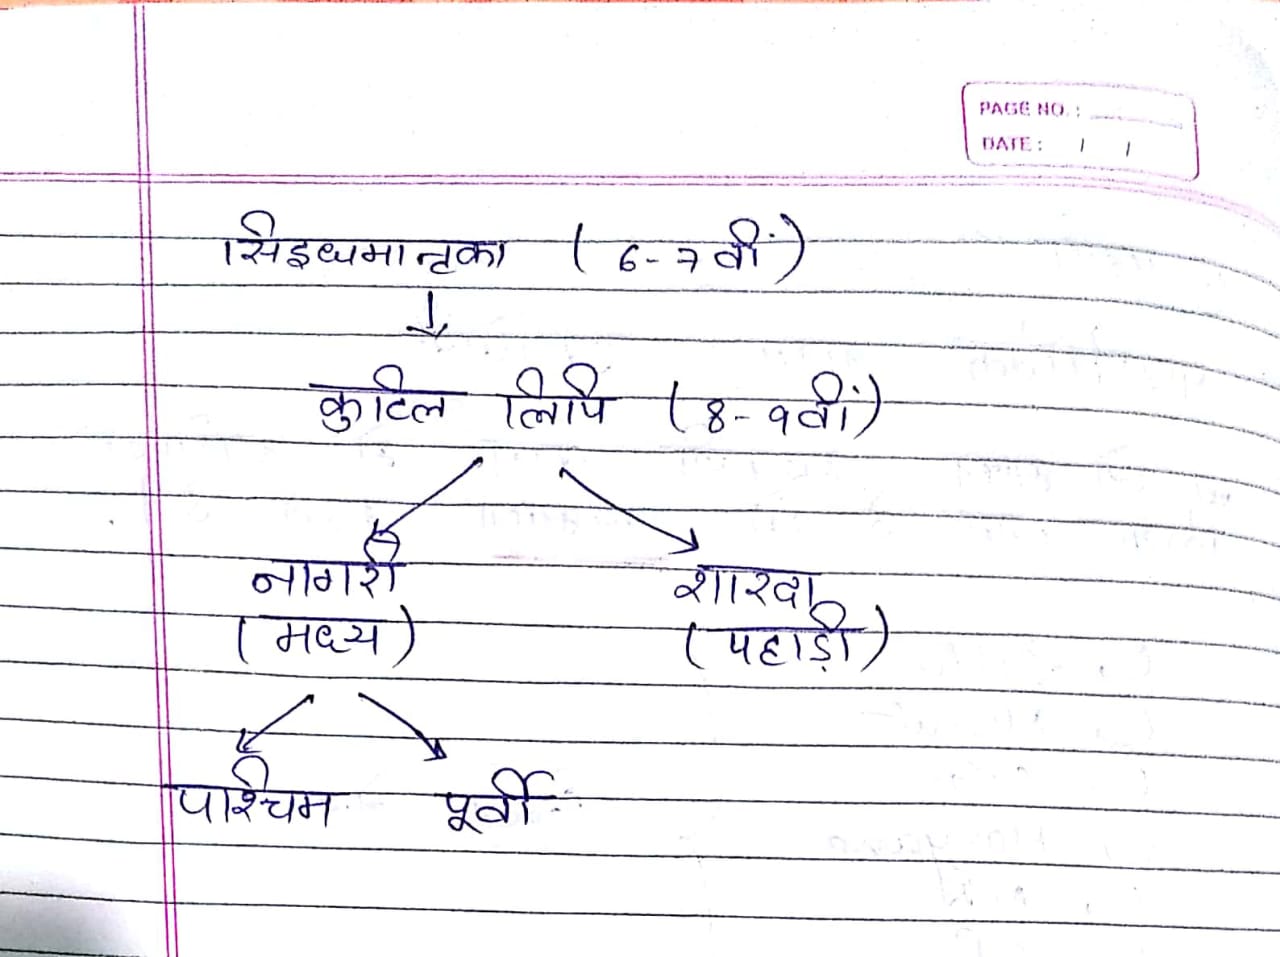 PAGE NO. :
DATE : / /
सिइधमातृका ( 6-7वीं )
कुटिल लिपि ( 8-9वीं )
नागरी शारदा
( मध्य ) ( पहाड़ी )
पश्चिम पूर्वी